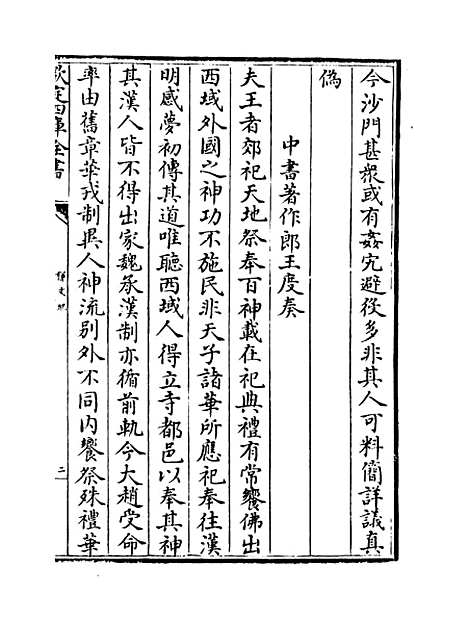 今沙門甚衆或有姦宄避役多非其人可料簡詳議真
偽
中書著作郎王度奏
夫王者郊祀天地祭奉百神載在祀典禮有常饗佛出
西域外國之神功不施民非天子諸華所應祀奉往漢
明感夢初傳其道唯聽西域人得立寺都邑以奉其神
其漢人皆不得出家魏承漢制亦循前軌今大趙受命
率由舊章華戎制異人神流別外不同内饗祭殊禮華
欽定四庫全書
釋文紀
二